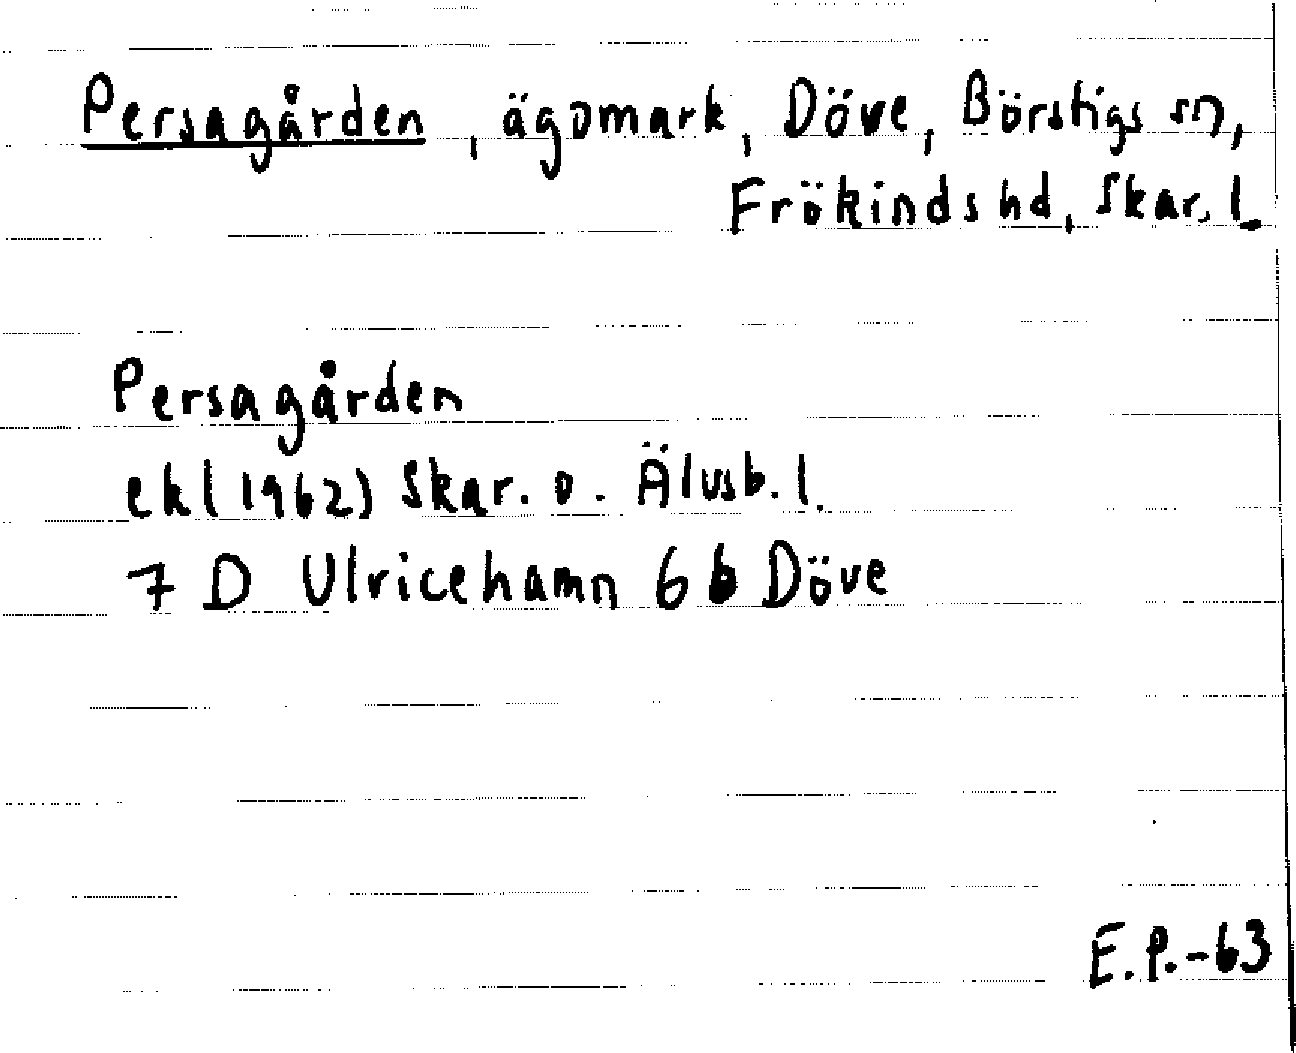 Persagården, ägomark, Döve, Börstigs sn,
Frökinds hd, Skar. l.
Persagården
ek (1962) Skar. o. Älvsb. l.
7 D Ulricehamn 6 b Döve
E.P.-63